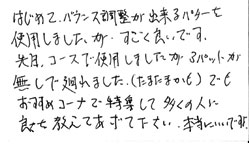 はじめて、バランス調整が出来るパターを
使用しましたが、すごく良いです。
先日、コースで使用しましたが3パットが
無しで廻れました。(たまたまかも)でも
おすすめコーナで特集して多くの人に
良さを教えてあげて下さい。本当にいいです。